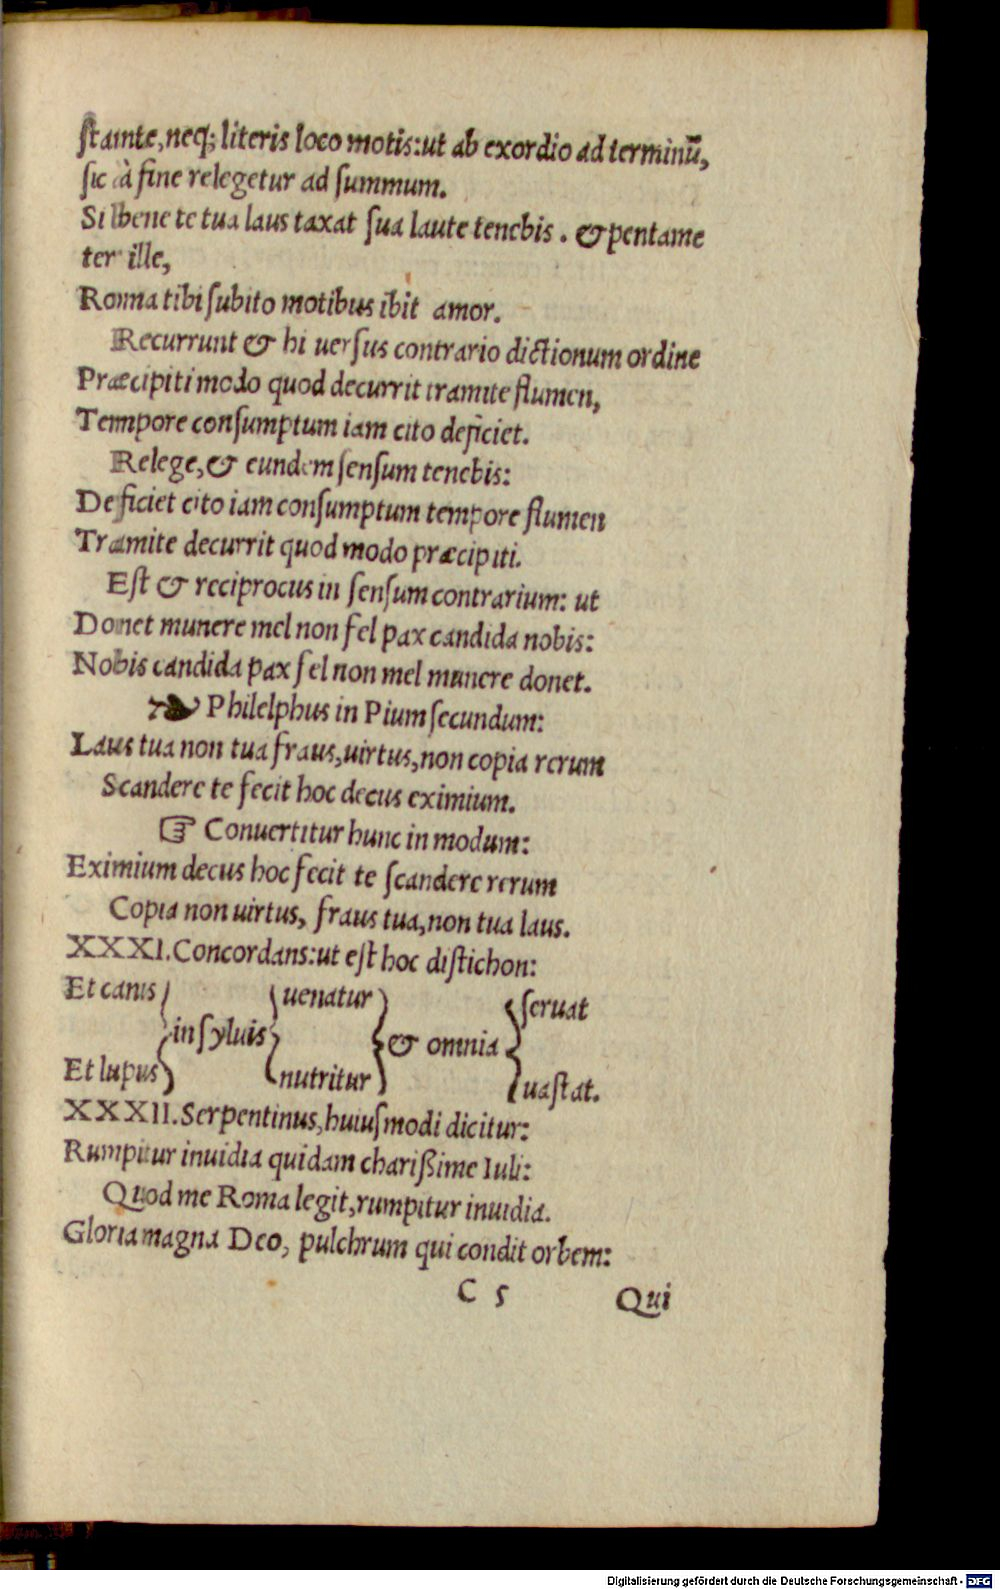 ſtante, neq; literis loco motis: ut ab exordio ad terminũ,
ſic à fine relegetur ad ſummum.
Si bene te tua laus taxat ſua laute tenebis. & pentame
ter ille,
Roma tibi ſubito motibus ibit amor.
Recurrunt & hi uerſus contrario dictionum ordine
Præcipiti modo quod decurrit tramite flumen,
Tempore conſumptum iam cito deficiet.
Relege, & eundem ſenſum tenebis:
Deficiet cito iam conſumptum tempore flumen
Tramite decurrit quod modo præcipiti.
Eſt & reciprocus in ſenſum contrarium: ut
Donet munere mel non fel pax candida nobis:
Nobis candida pax fel non mel munere donet.
❧ Philelphus in Pium ſecundum:
Laus tua non tua fraus, uirtus, non copia rerum
Scandere te fecit hoc decus eximium.
☞ Conuertitur hunc in modum:
Eximium decus hoc fecit te ſcandere rerum
Copia non uirtus, fraus tua, non tua laus.
XXXI. Concordans: ut eſt hoc diſtichon:
Et canis } { uenatur } { ſeruat
in ſyluis & omnia
Et lupus } { nutritur } { uaſtat.
XXXII. Serpentinus, huiuſmodi dicitur:
Rumpitur inuidia quidam charißime Iuli:
Quod me Roma legit, rumpitur inuidia.
Gloria magna Deo, pulchrum qui condit orbem:
C 5 Qui
Digitalisierung gefördert durch die Deutsche Forschungsgemeinschaft - DFG